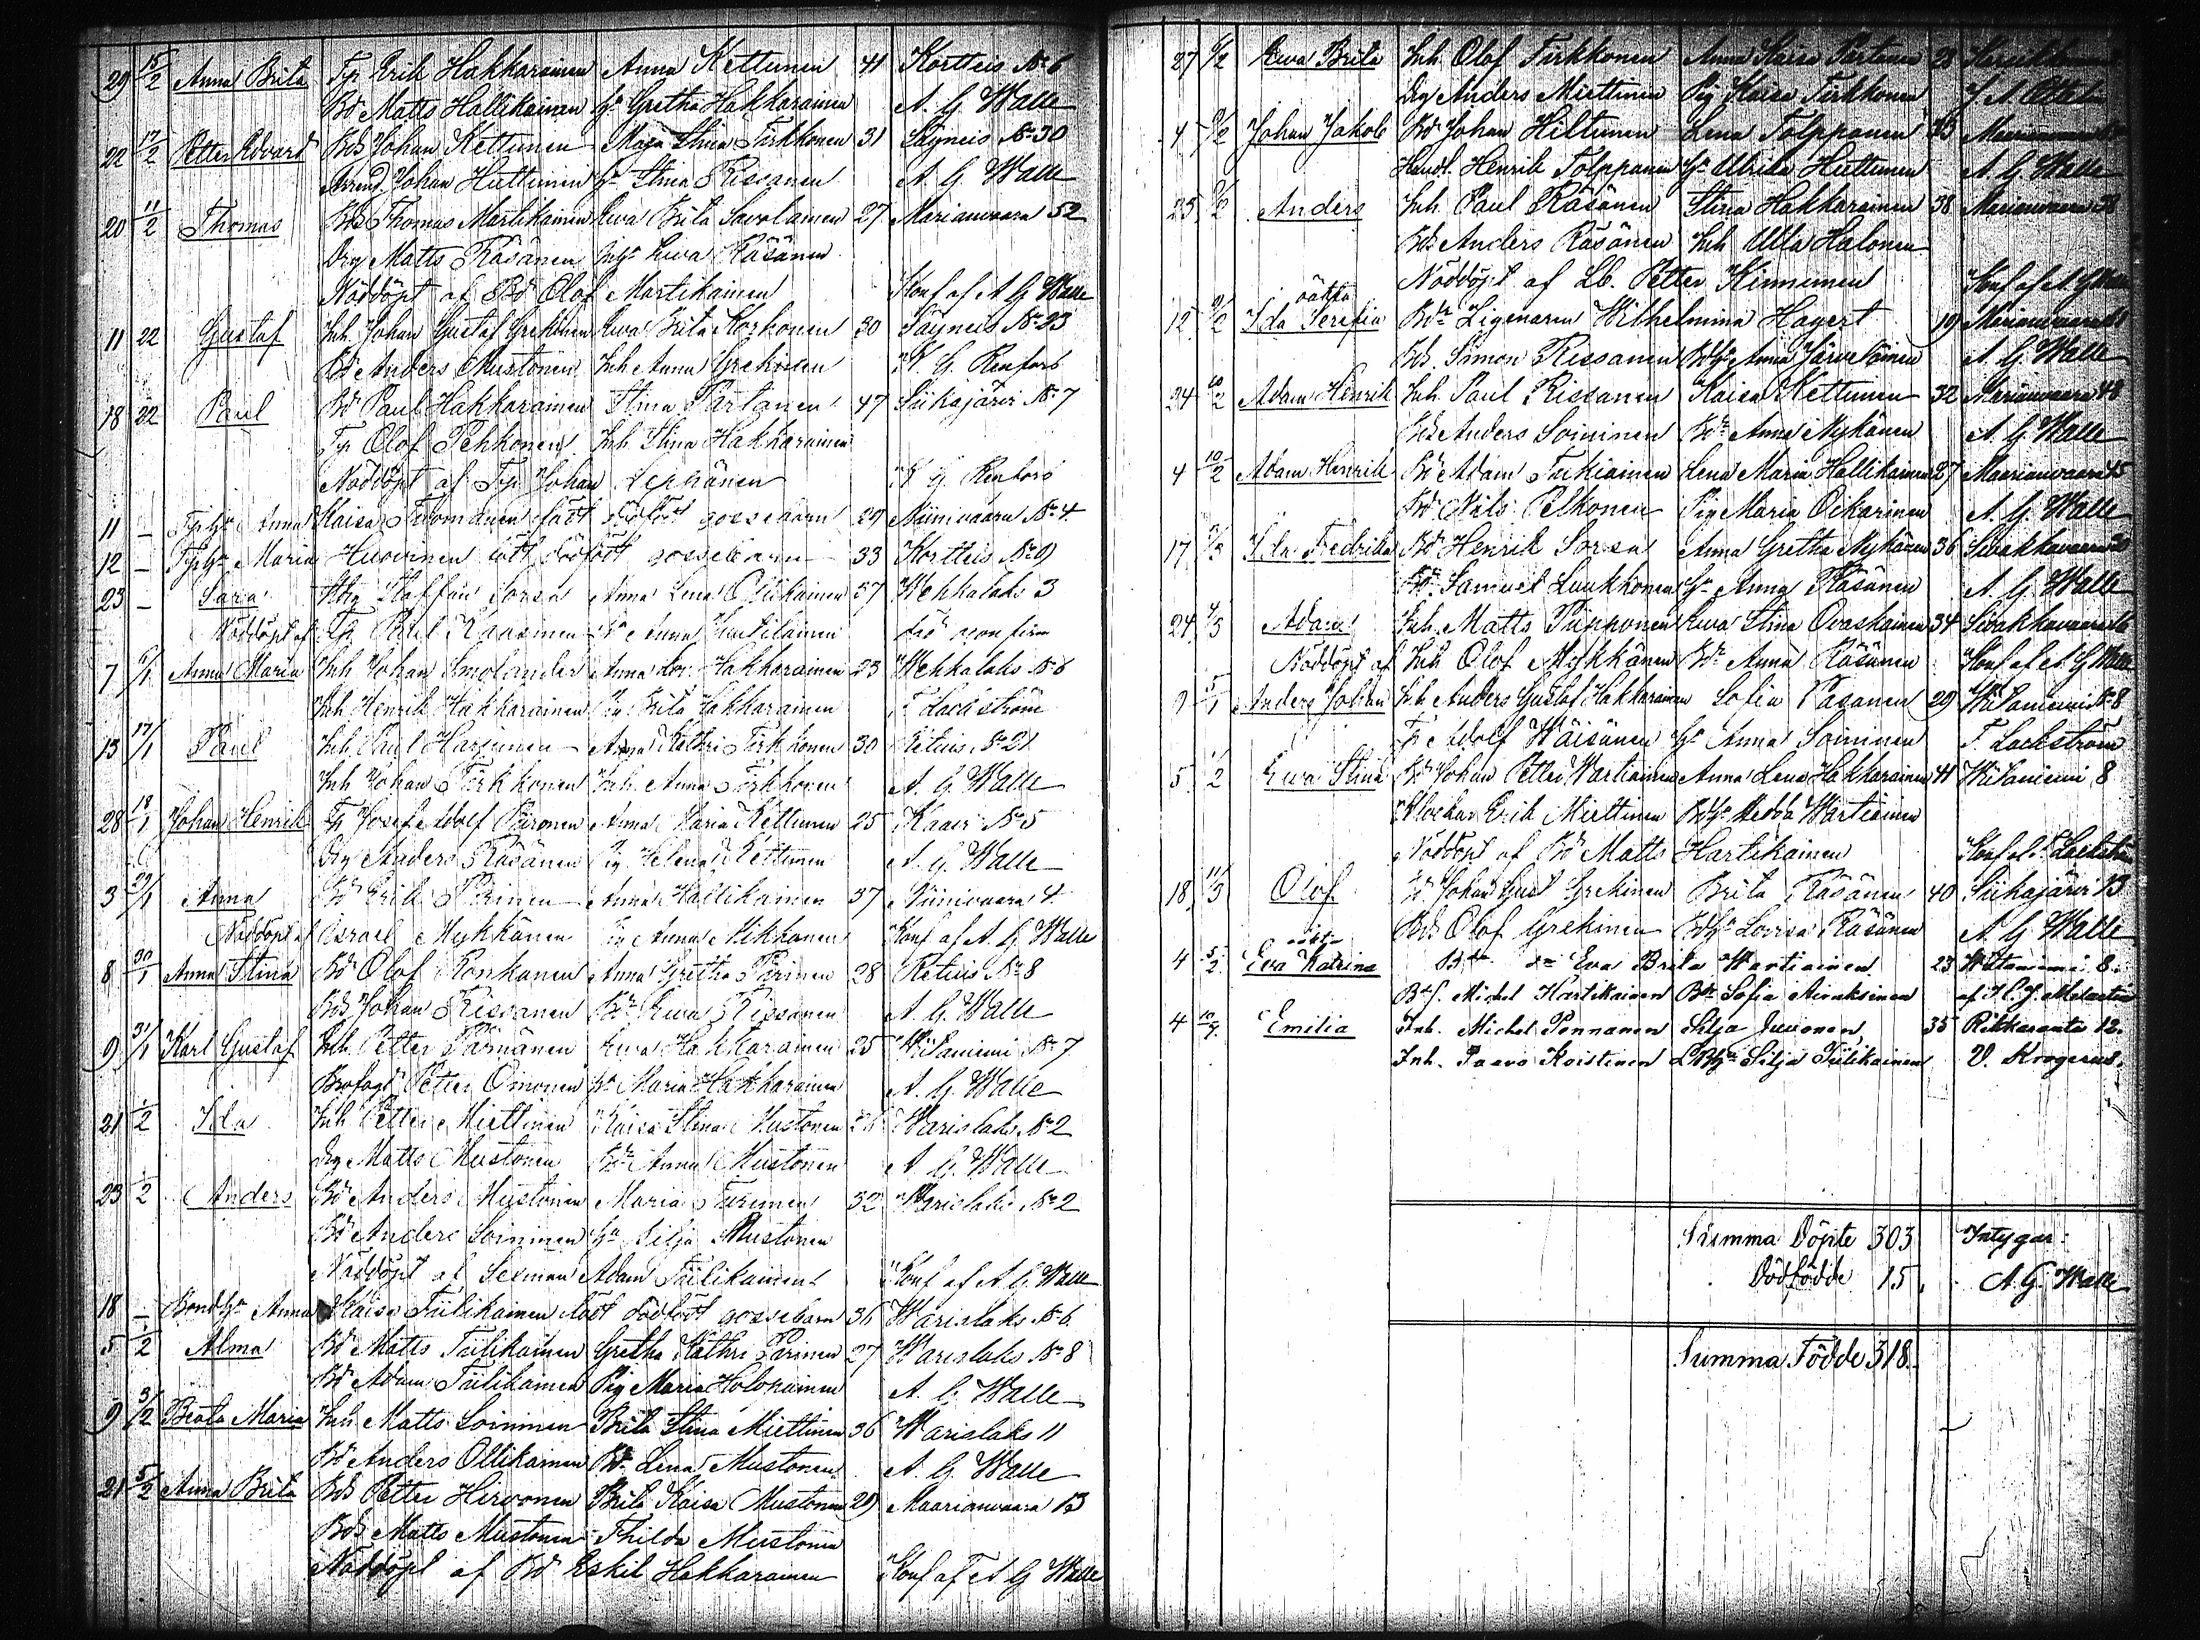 29 15/2 Anna Brita Tp Erik Hakkarainen Anna Kettunen 41 Kortteis No 6
Bd Matts Hallikainen Hu Gretha Hakkarainen A. G. Walle
22 17/2 Petter Edvard Bds Johan Kettunen Maja Stina Tirkkonen 31 Säyneis No 30
Arrend. Johan Huttunen Hu Stina Rissanen A. G. Walle
20 11/2 Thomas Bds Thomas Martikainen Ewa Brita Savolainen 27 Marianvaara 52
Drg Matts Räsänen Inhu Ewa Räsänen
Nöddöpt af Bd Olof Martikainen Konf af A G Walle
11 22 Gustaf Inh. Johan Gustaf Grekinen Ewa Brita Korhonen 30 Säyneis No 23
Bd Anders Mustonen Inh Anna Grekinen K. G. Renfors
18 22 Paul Bd Paul Hakkarainen Stina Partanen 47 Siikajärvi No 7
Tp Olof Pehkonen Inh Stina Hakkarainen
Nöddöpt af Tp Johan Leppänen K G Renfors
11 — Tphu Anna Kaisa Tuomainen födt dödfödt gossebarn 29 Niinivaara No 4
12 — Tphu Maria Huovinen födt dödfödt gossebarn 33 Kortteis No 9
23 — Sara Staffan Sorsa Anna Lena Ollikainen 37 Wehkalaks 3
Nöddöpt af Tp Paul Anna
7 6/1 Anna Maria Inh Johan Smolander Anna Lov. Hakkarainen 23 Wehkalaks No 6
Inh Henrik Hakkarainen Pig Brita Hakkarainen F. Lackström
13 17/1 Paul Inh Paul Harjunen Anna Kathri Tirkkonen 30 Retuis No 21
Inh Johan Tirkkonen Inh. Anna Tirkkonen A. G. Walle
28 18/1 Johan Henrik Tp Josef Adolf Piironen Anna Maria Kettunen 25 Kaavi No 5
Drg Anders Räsänen Pig Helena Kettunen A. G. Walle
3 29/1 Anna Bd Erik Pirinen Anna Hallikainen 37 Niinivaara 4
Nöddöpt af Israel Mykkänen Pig Anna Mikkonen Konf af A. G Walle
8 30/1 Anna Stina Bd Olof Ronkanen Anna Gretha Pirinen 28 Retuis No 8
Bds Johan Rissanen Bdr Ewa Rissanen A. G. Walle
9 31/1 Karl Gustaf Inh. Petter Pärnänen Ewa Hakkarainen 25 Wiitaniemi No 7
Brofogd Petter Oinonen Hu Maria Hakkarainen A. G. Walle
21 1/2 Ida Inh Petter Miettinen Kaisa Stina Mustonen 26 Warislaks No 2
Drg Matts Mustonen Bdr Anna Mustonen A. G. Walle
23 1/2 Anders Bd Anders Mustonen Maria Turunen 32 Warislaks No 2
Bd Anders Soininen Hu Silja Mustonen
Nöddöpt af Sexman Adam Tiilikainen Konf af A. G. Walle
18 — Bondhu Anna Kaisa Tiilikainen födt dödfödt gossebarn 36 Warislaks No 6
5 1/2 Alma Bd Matts Tiilikainen Gretha Kathri Pirinen 27 Warislaks No 8
Bd Adam Tiilikainen Pig Maria Holopainen A. G. Walle
9 3/2 Beata Maria Inh. Matts Soininen Brita Stina Miettinen 36 Warislaks 11
Bd Anders Ollikainen Bdr Lena Mustonen A. G. Walle
21 5/2 Anna Brita Bds Petter Hirvonen Brita Kaisa Mustonen 29 Maarianvaara 13
Bds Matts Mustonen Thilda Mustonen
Nöddöpt af Bd Eskil Hakkarainen Konf af A G Walle
27 6/2 Ewa Brita Inh Olof Tirkkonen Anna Kaisa Partanen 28
Drg Anders Miettinen Pig Kaisa Tirkkonen
4 9/2 Johan Jakob Bd Johan Hiltunen Lena Tolppanen
Handl. Henrik Tolppanen Hu Ulrika Huttunen A. G Walle
25 9/2 Anders Inh Paul Räsänen Stina Hakkarainen 38 Marianvaara 38
Bds Anders Räsänen Inh Ulla Halonen
Nöddöpt af Lb. Petter Kinnunen Konf af A. G Walle
oäkta
12 9/2 Ida Serefia Bdr Ligenaren Wilhelmina Hagert 19 Marianvaara
Bds. Simon Rissanen Bdhu Anna Järveläinen A. G. Walle
24 10/2 Adam Henrik Inh. Paul Rissanen Kaisa Kettunen 32 Marianvaara 48
Bds Anders Soininen Bdr Anna Nykänen A. G. Walle
4 10/2 Adam Henrik Bd Adam Tukiainen Lena Maria Hallikainen 27 Maarianvaara 45
Bd Nils Pelkonen Pig Maria Oikarinen A. G. Walle
17 Ida Fredrika Bd Henrik Sorsa Anna Gretha Nykänen 36 Sivakkavaara
Bd Samuel Laukkonen Hu Anna Räsänen A. G. Walle
24 4/3 Adam Inh. Matts Piipponen Ewa Stina Ovaskainen 34 Sivakkavaara
Nöddöpt af Inh Olof Mykkänen Bdr Anna Räsänen Konf af A. G Walle
9 Anders Johan Inh Anders Gustaf Hakkarainen Sofia Pasanen 29 Wiitaniemi No 8
Tp Adolf Wäisänen Hu Anna Soininen F. Lackström
5 1/2 Ewa Stina Bd Johan Petter Wartiainen Anna Lena Hakkarainen 41 Wiitaniemi 8
Klockar Erik Miettinen Bdhu Hedda Wartiainen
Nöddöpt af Bd Matts Hartikainen Konf af F. Lackström
18 11/3 Olof Bd Johan Gust Grekinen Brita Räsänen 40 Siikajärvi 13
Bds Olof Grekinen Bdhu Lovisa Räsänen A G Walle
oäkta
4 5/2 Eva Katrina Eva Brita Wartiainen 23 Witaniemi 8.
Bds. Michel Hartikainen Bdr Sofia Airaksinen
4 10/9 Emilia Inh. Michel Pennanen Silja Juvonen 35 Rikkaranta 12.
Inh. Paavo Koistinen LBhu Silja Tiilikainen V. Krogerus.
Summa Döpte 303 Intygar:
Dödfödde 15. A. G. Walle
Summa Födde 318.